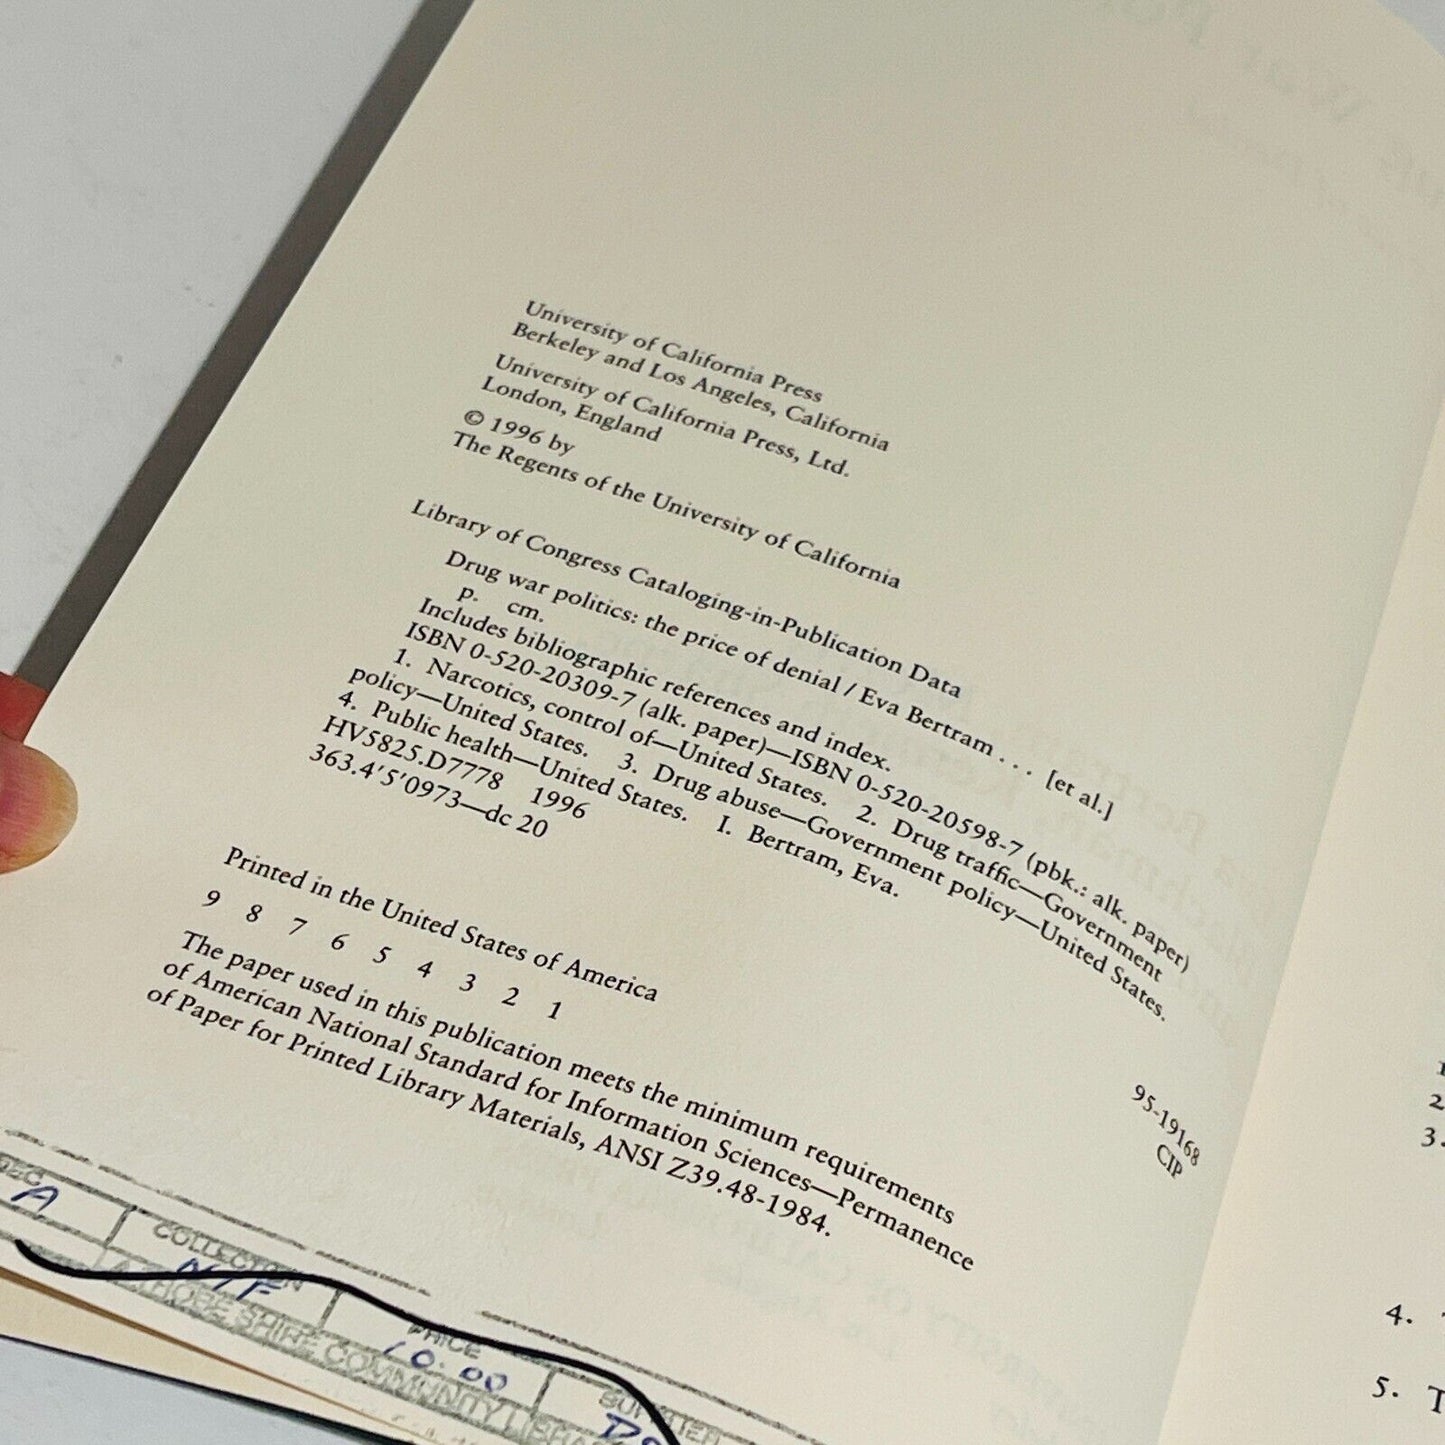 University of California Press
Berkeley and Los Angeles, California
University of California Press, Ltd.
London, England
© 1996 by
The Regents of the University of California
Library of Congress Cataloging-in-Publication Data
Drug war politics: the price of denial / Eva Bertram . . . [et al.]
p. cm.
Includes bibliographic references and index.
ISBN 0-520-20309-7 (alk. paper)—ISBN 0-520-20598-7 (pbk.: alk. paper)
1. Narcotics, control of—United States. 2. Drug traffic—Government
policy—United States. 3. Drug abuse—Government policy—United States.
4. Public health—United States. I. Bertram, Eva.
HV5825.D7778 1996
363.4'5'0973—dc 20
95-19168
CIP
Printed in the United States of America
9 8 7 6 5 4 3 2 1
The paper used in this publication meets the minimum requirements
of American National Standard for Information Sciences—Permanence
of Paper for Printed Library Materials, ANSI Z39.48-1984.
A
COLLECTION
NTF
PRICE
10.00
SHIRE COMMUNITY
1
2
3.
4.
5. T